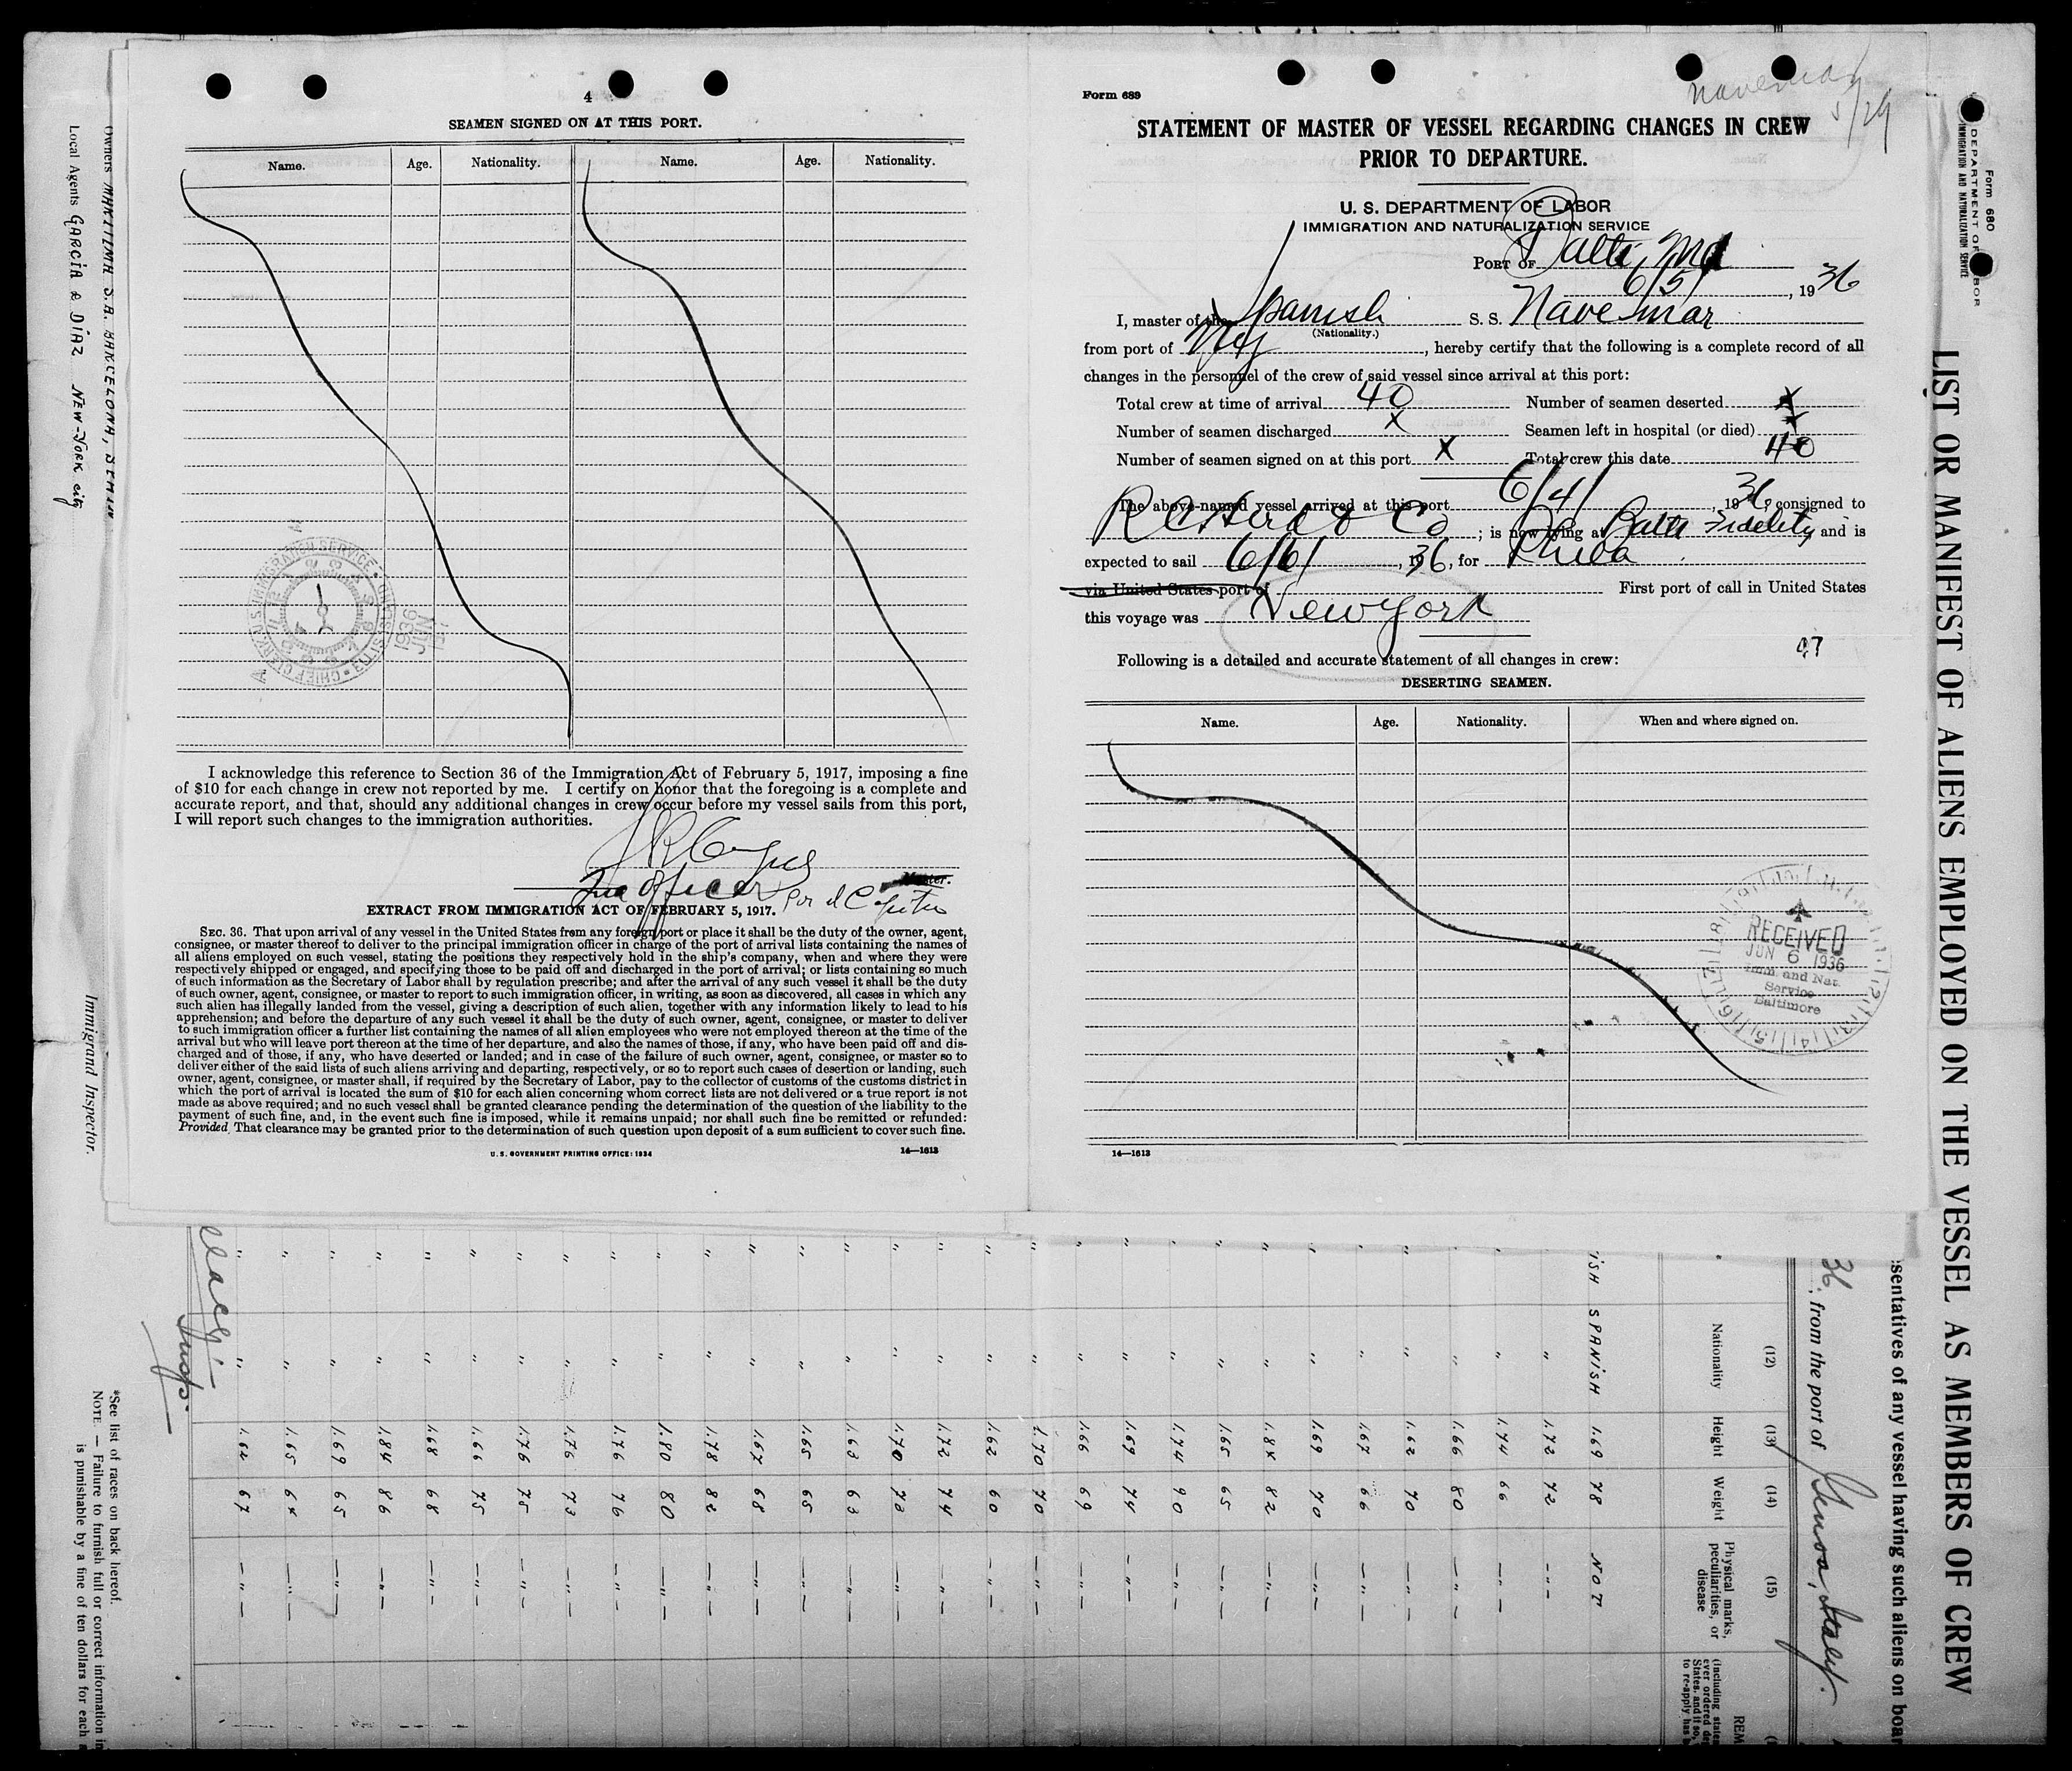 4
SEAMEN SIGNED ON AT THIS PORT.
Name. Age. Nationality. Name. Age. Nationality.
CHIEF CLERK U.S. IMMIGRATION SERVICE
1936 JUN
I acknowledge this reference to Section 36 of the Immigration Act of February 5, 1917, imposing a fine
of $10 for each change in crew not reported by me. I certify on honor that the foregoing is a complete and
accurate report, and that, should any additional changes in crew occur before my vessel sails from this port,
I will report such changes to the immigration authorities.
Master.
officer Por el Capitan
EXTRACT FROM IMMIGRATION ACT OF FEBRUARY 5, 1917.
SEC. 36. That upon arrival of any vessel in the United States from any foreign port or place it shall be the duty of the owner, agent,
consignee, or master thereof to deliver to the principal immigration officer in charge of the port of arrival lists containing the names of
all aliens employed on such vessel, stating the positions they respectively hold in the ship's company, when and where they were
respectively shipped or engaged, and specifying those to be paid off and discharged in the port of arrival; or lists containing so much
of such information as the Secretary of Labor shall by regulation prescribe; and after the arrival of any such vessel it shall be the duty
of such owner, agent, consignee, or master to report to such immigration officer, in writing, as soon as discovered, all cases in which any
such alien has illegally landed from the vessel, giving a description of such alien, together with any information likely to lead to his
apprehension; and before the departure of any such vessel it shall be the duty of such owner, agent, consignee, or master to deliver
to such immigration officer a further list containing the names of all alien employees who were not employed thereon at the time of the
arrival but who will leave port thereon at the time of her departure, and also the names of those, if any, who have been paid off and dis-
charged and of those, if any, who have deserted or landed; and in case of the failure of such owner, agent, consignee, or master so to
deliver either of the said lists of such aliens arriving and departing, respectively, or so to report such cases of desertion or landing, such
owner, agent, consignee, or master shall, if required by the Secretary of Labor, pay to the collector of customs of the customs district in
which the port of arrival is located the sum of $10 for each alien concerning whom correct lists are not delivered or a true report is not
made as above required; and no such vessel shall be granted clearance pending the determination of the question of the liability to the
payment of such fine, and, in the event such fine is imposed, while it remains unpaid; nor shall such fine be remitted or refunded:
Provided, That clearance may be granted prior to the determination of such question upon deposit of a sum sufficient to cover such fine.
U. S. GOVERNMENT PRINTING OFFICE: 1934
14—1613
Form 689
Navemar
5/29
STATEMENT OF MASTER OF VESSEL REGARDING CHANGES IN CREW
PRIOR TO DEPARTURE.
U. S. DEPARTMENT OF LABOR
IMMIGRATION AND NATURALIZATION SERVICE
PORT OF Balto Md
6/5/, 1936
I, master of the Spanish S. S. Navemar
(Nationality.)
from port of NY, hereby certify that the following is a complete record of all
changes in the personnel of the crew of said vessel since arrival at this port:
Total crew at time of arrival 40 Number of seamen deserted x
Number of seamen discharged x Seamen left in hospital (or died) x
Number of seamen signed on at this port X Total crew this date 40
The above-named vessel arrived at this port 6/4/, 1936, consigned to
& Co; is now lying at Balto Fidelity and is
expected to sail 6/6/, 1936, for Phila
via United States port of First port of call in United States
this voyage was New York
Following is a detailed and accurate statement of all changes in crew:
DESERTING SEAMEN.
Name. Age. Nationality. When and where signed on.
RECEIVED
JUN 6 1936
Imm. and Nat.
Service
Baltimore
14—1613
Form 680
DEPARTMENT OF LABOR
IMMIGRATION AND NATURALIZATION SERVICE
LIST OR MANIFEST OF ALIENS EMPLOYED ON THE VESSEL AS MEMBERS OF CREW
sentatives of any vessel having such aliens on boar
36, from the port of Genova, Italy.
(12) (13) (14) (15)
Nationality Height Weight Physical marks, peculiarities, or disease
REM
ISH SPANISH 1.69 78 NOT
" 1.72 72 - " -
" 1.74 66 - " -
" 1.66 80 - " -
" 1.62 70 - " -
" 1.67 66 - " -
" 1.69 70 - " -
" 1.84 82 - " -
" 1.65 65 - " -
" 1.74 90 - " -
" 1.69 74 - " -
" 1.66 69 - " -
" 1.70 70 - " -
" 1.62 60 - " -
" 1.72 74 - " -
" 1.70 73 - " -
" 1.63 63 - " -
" 1.65 65 - " -
" 1.67 68 - " -
" 1.78 82 - " -
" 1.80 80 - " -
" 1.76 76 - " -
" 1.76 73 - " -
" 1.76 75 - " -
" 1.66 75 - " -
" 1.68 68 - " -
" 1.84 86 - " -
" 1.69 65 - " -
" 1.65 64 - " -
" 1.62 67 - " -
Owners MARITIMA S.A. BARCELONA,
Local Agents GARCIA & DÍAZ NEW-YORK city
Immigrant Inspector.
*See list of races on back hereof.
NOTE. — Failure to furnish full or correct information in
is punishable by a fine of ten dollars for each a